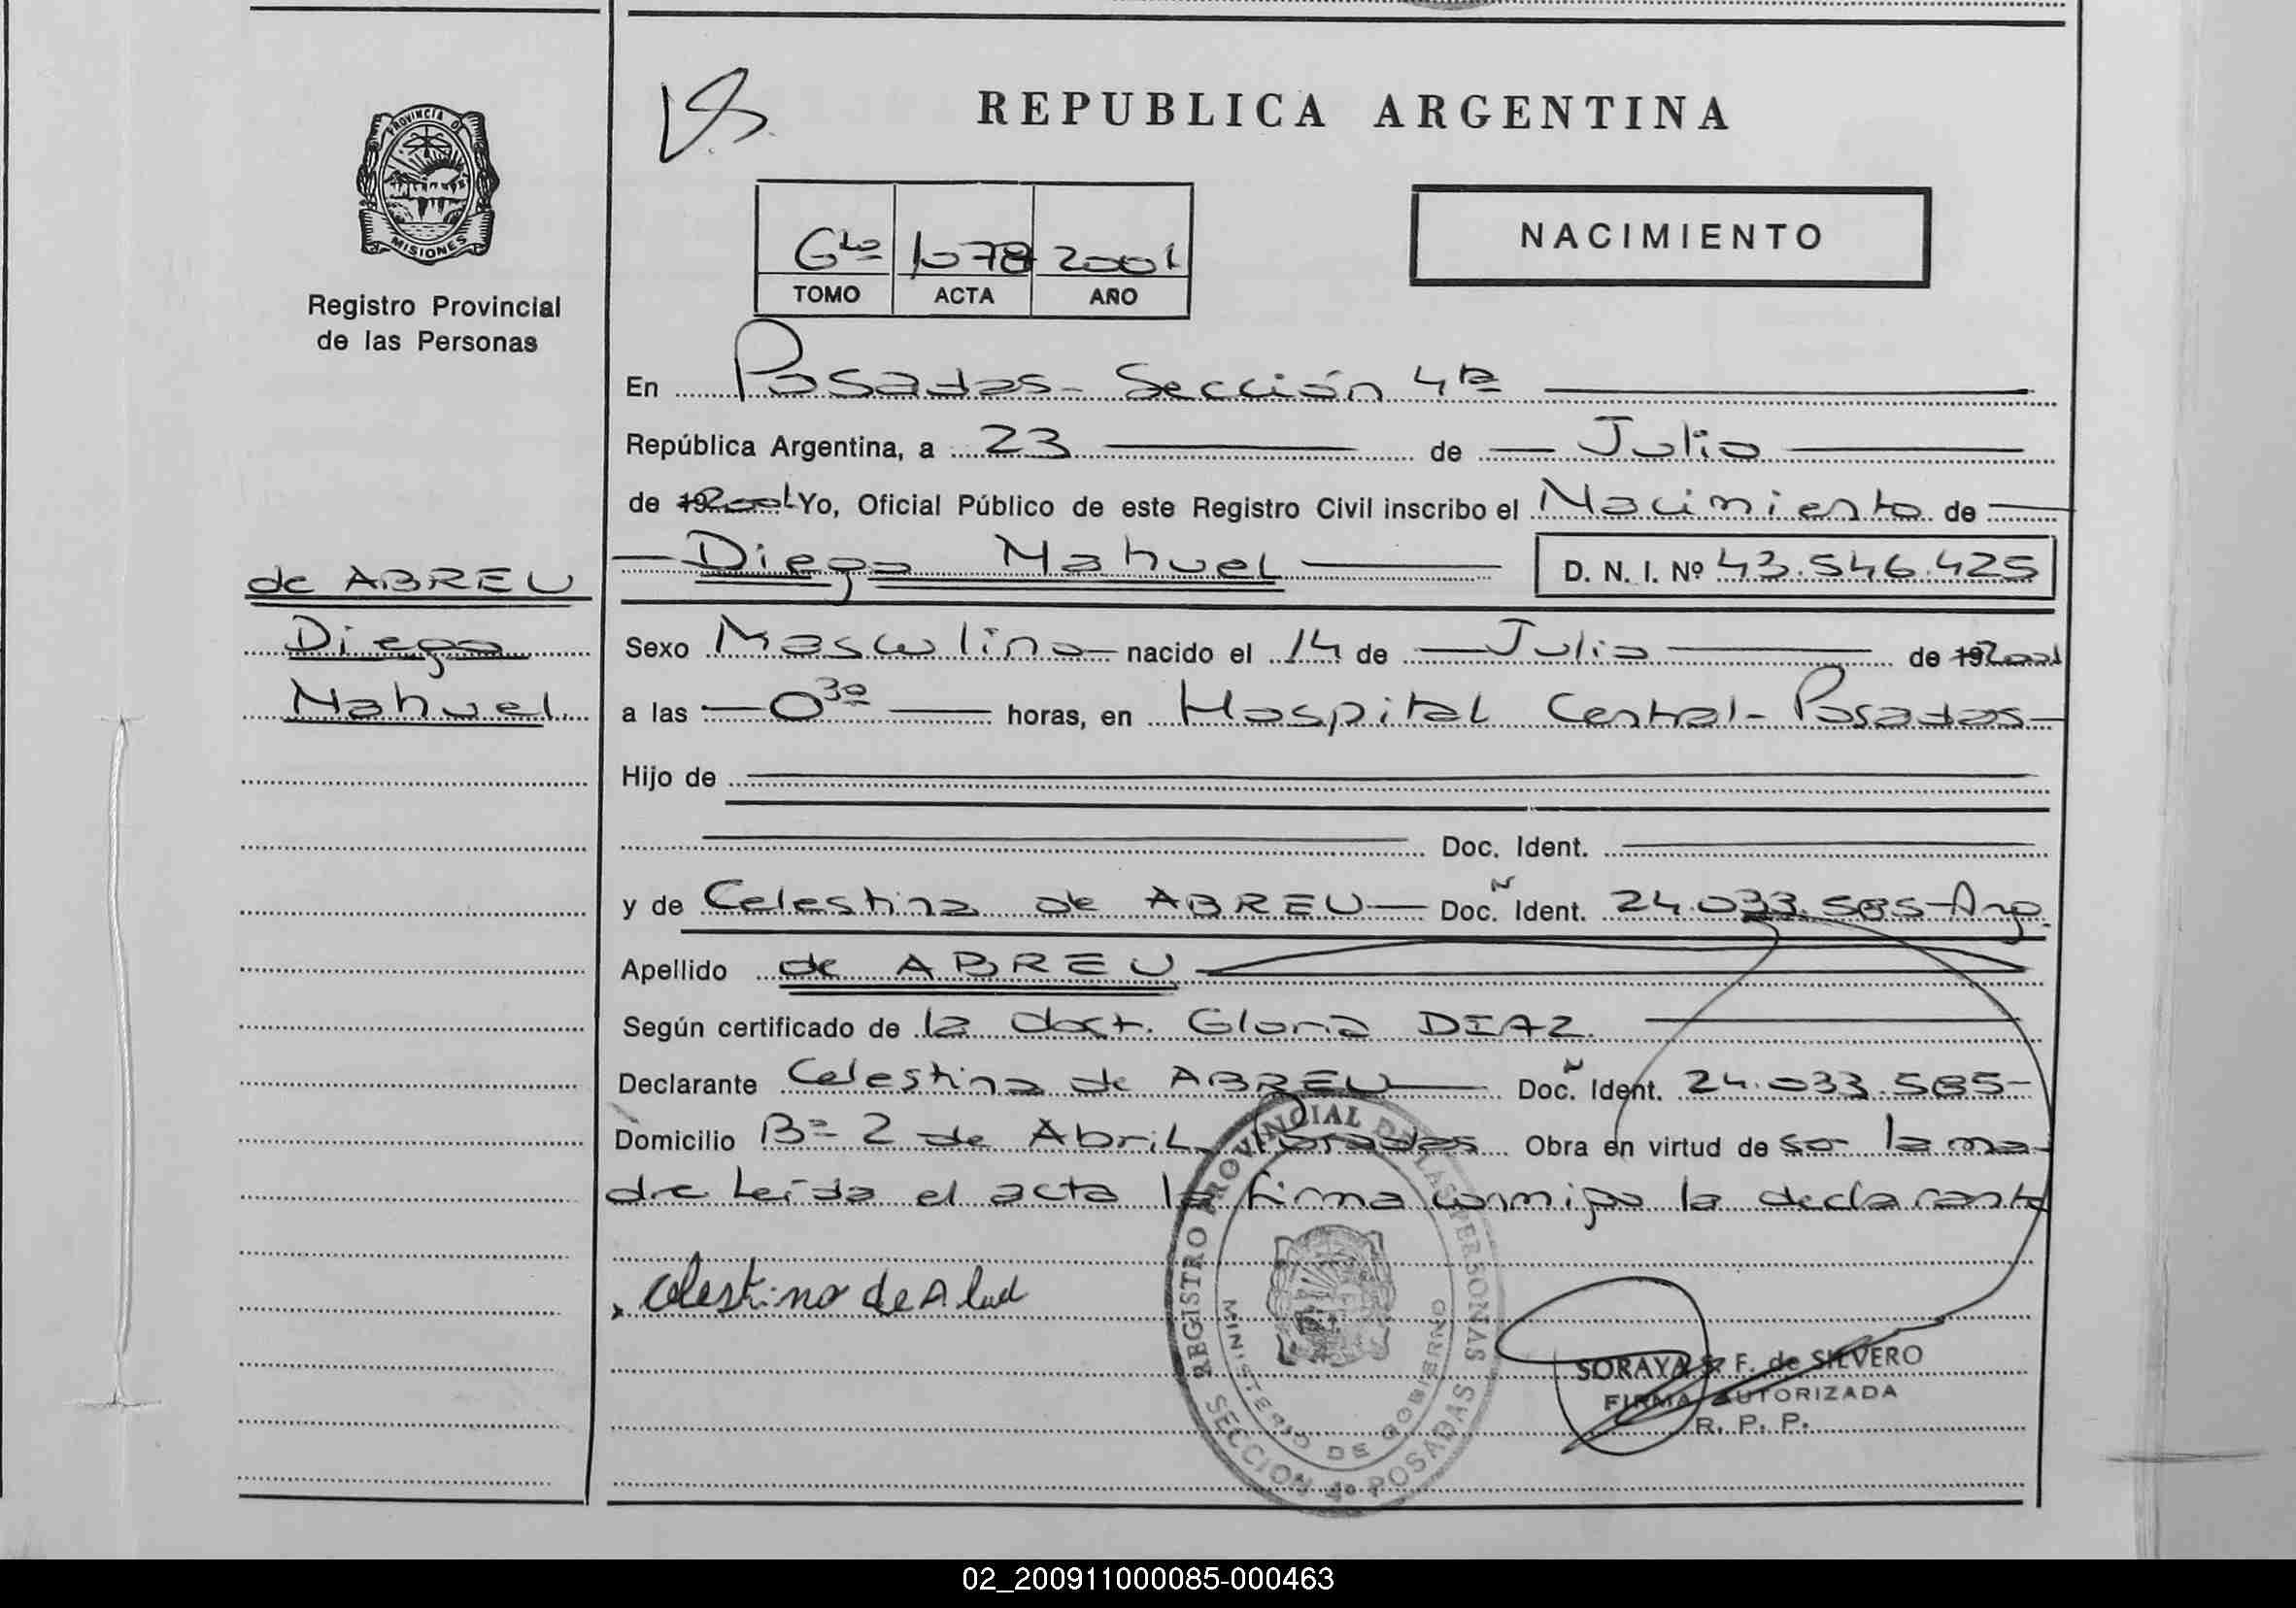 REPUBLICA ARGENTINA
PROVINCIA DE
MISIONES
Registro Provincial
de las Personas
6to 1078 2001
TOMO ACTA AÑO
NACIMIENTO
En Posadas - Sección 4ta
República Argentina, a 23 de Julio
de 19 2001 Yo, Oficial Público de este Registro Civil inscribo el Nacimiento de
Diego Nahuel D. N. I. Nº 43.546.425
de ABREU
Diego
Nahuel
Sexo Masculino nacido el 14 de Julio de 19 2001
a las 0 30 horas, en Hospital Central - Posadas
Hijo de
Doc. Ident.
y de Celestina de ABREU Doc. Ñ Ident. 24.033.585 - Arg.
Apellido de ABREU
Según certificado de la doct. Gloria DIAZ.
Declarante Celestina de ABREU Doc. Ñ Ident. 24.033.585 -
Domicilio Bº 2 de Abril, Posadas Obra en virtud de so la ma-
dre Leída el acta la firma conmigo la declarante
Celestina de
REGISTRO PROVINCIAL DE LAS PERSONAS
MINISTERIO DE GOBIERNO
SECCION 4º POSADAS
SORAYA F. de SILVERO
FIRMA AUTORIZADA
R. P. P.
02_200911000085-000463